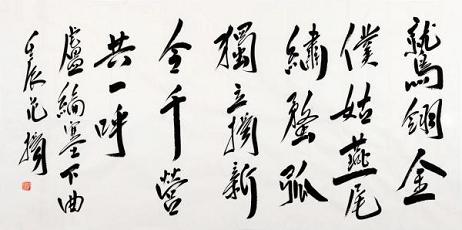 鷲翎金
僕姑燕尾
繡蝥弧
獨立揚新
令千營
共一呼
盧綸塞下曲
壬辰范揚